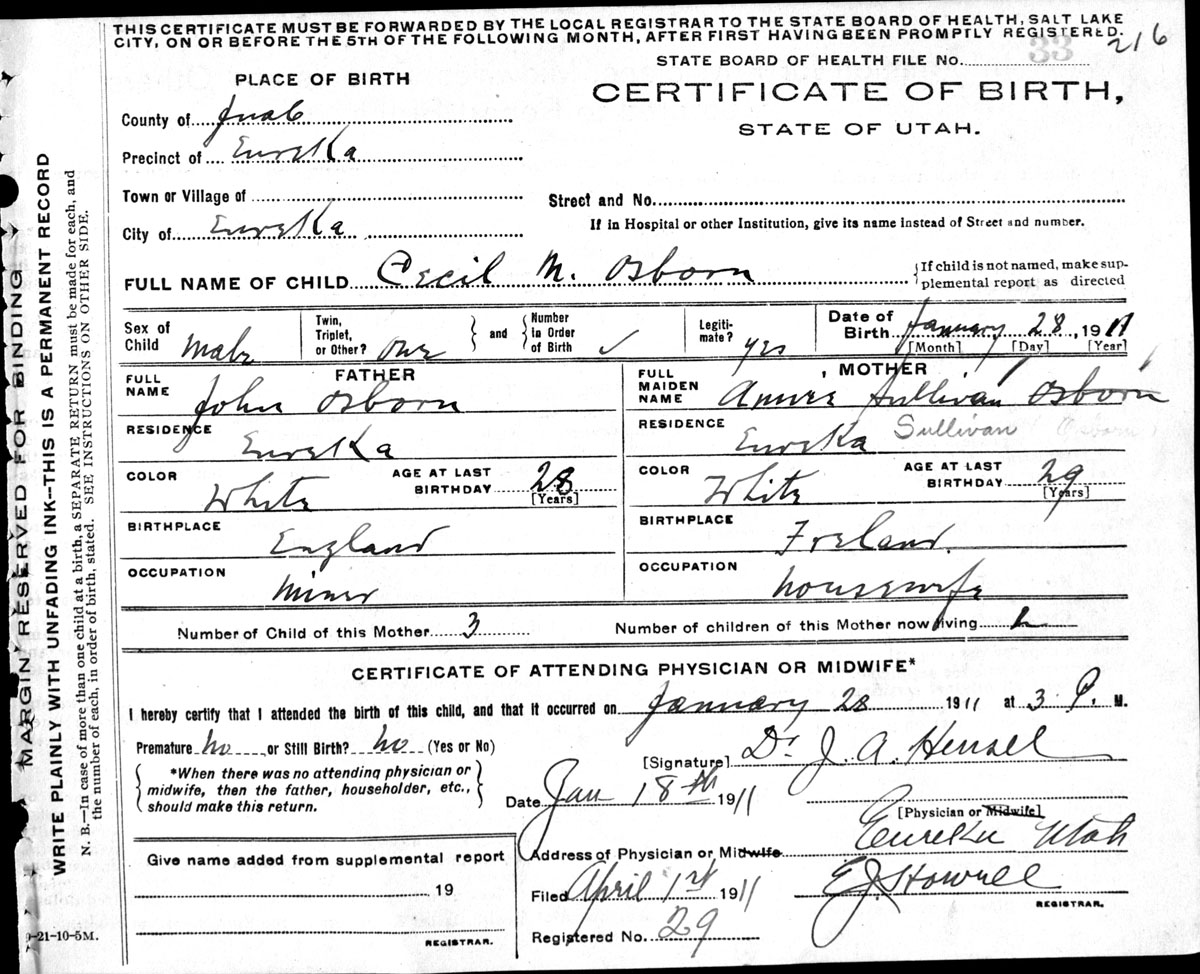 THIS CERTIFICATE MUST BE FORWARDED BY THE LOCAL REGISTRAR TO THE STATE BOARD OF HEALTH, SALT LAKE
CITY, ON OR BEFORE THE 5TH OF THE FOLLOWING MONTH, AFTER FIRST HAVING BEEN PROMPTLY REGISTERED.
33 216
STATE BOARD OF HEALTH FILE No.
PLACE OF BIRTH
CERTIFICATE OF BIRTH,
STATE OF UTAH.
County of Juab
Precinct of Eureka
Town or Village of
Street and No.
City of Eureka
If in Hospital or other Institution, give its name instead of Street and number.
FULL NAME OF CHILD Cecil M. Osborn
If child is not named, make sup-
plemental report as directed
Sex of Child Male
Twin, Triplet, or Other? One
and Number in Order of Birth ✓
Legiti-mate? yes
Date of Birth January 28, 1911
[Month] [Day] [Year]
FATHER
FULL NAME John Osborn
RESIDENCE Eureka
COLOR White
AGE AT LAST BIRTHDAY 28 [Years]
BIRTHPLACE England
OCCUPATION Miner
MOTHER
FULL MAIDEN NAME Annie Sullivan Osborn
RESIDENCE Eureka Sullivan Osborn
COLOR White
AGE AT LAST BIRTHDAY 29 [Years]
BIRTHPLACE Ireland.
OCCUPATION housewife
Number of Child of this Mother 3
Number of children of this Mother now living
CERTIFICATE OF ATTENDING PHYSICIAN OR MIDWIFE*
I hereby certify that I attended the birth of this child, and that it occurred on January 28 1911 at 3 P. M.
Premature no or Still Birth? no (Yes or No)
*When there was no attending physician or
midwife, then the father, householder, etc.,
should make this return.
[Signature] Dr J. A. Hensel
Date Jan 18th 1911
[Physician or Midwife]
Address of Physician or Midwife Eureka Utah
Give name added from supplemental report
19
REGISTRAR.
Filed April 1st 1911
E J Howell
REGISTRAR.
Registered No. 29
9-21-10-5M.
MARGIN RESERVED FOR BINDING
WRITE PLAINLY WITH UNFADING INK--THIS IS A PERMANENT RECORD
N. B.—In case of more than one child at a birth, a SEPARATE RETURN must be made for each, and
the number of each, in order of birth, stated. SEE INSTRUCTIONS ON OTHER SIDE.